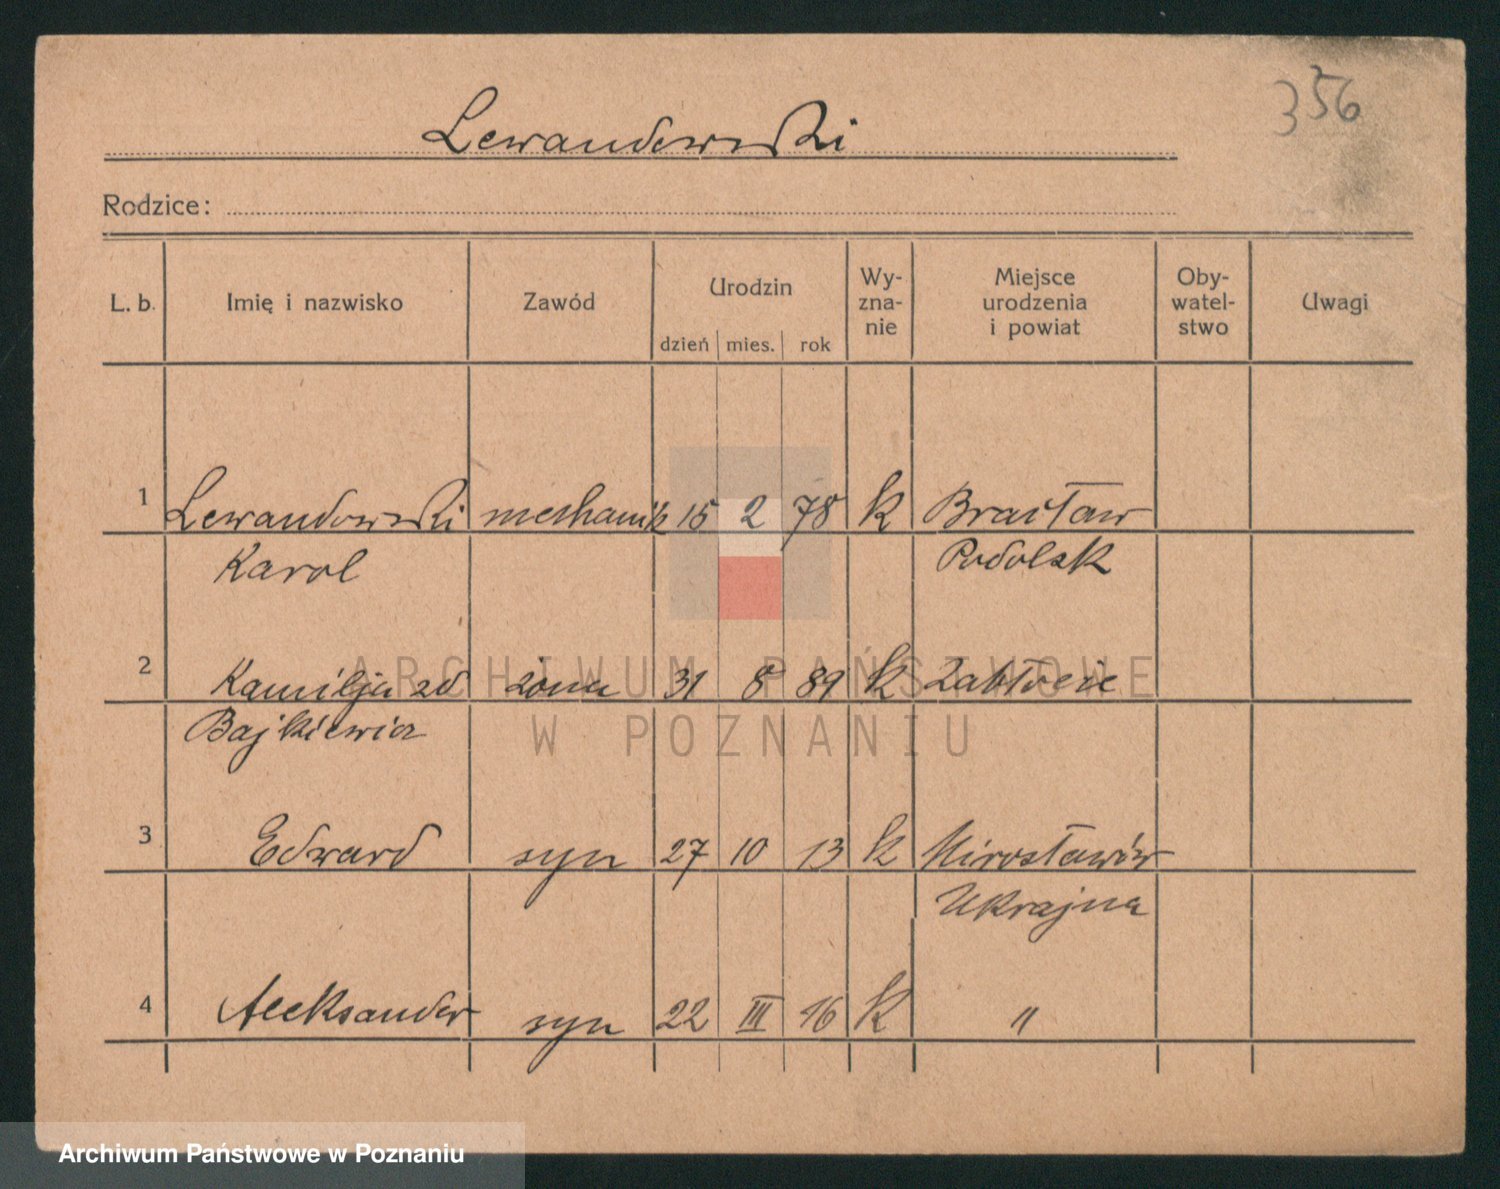 356
Lewandowski
Rodzice:
L. b. Imię i nazwisko Zawód Urodzin Wy-zna-nie Miejsce urodzenia i powiat Oby-watel-stwo Uwagi
dzień mies. rok
1 Lewandowski mechanik 15 2 78 k Bracław
Karol Podolsk
2 Kamilja zd żona 31 8 89 k Zabłocie
Bajkiewicz
3 Edward syn 27 10 13 k Mirosławów
Ukrajna
4 Aleksander syn 22 III 16 k "
ARCHIWUM PAŃSTWOWE
W POZNANIU
Archiwum Państwowe w Poznaniu